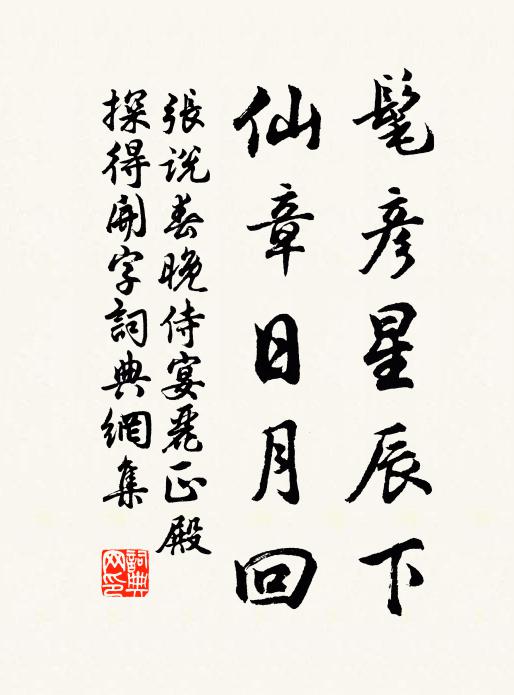 髦彦星辰下
仙章日月回
張說春晚侍宴麗正殿
探得開字詞典網集
詞典網印